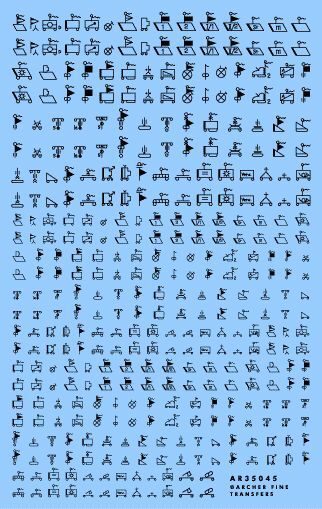 AR35045
GARCHER FINE
TRANSFERS